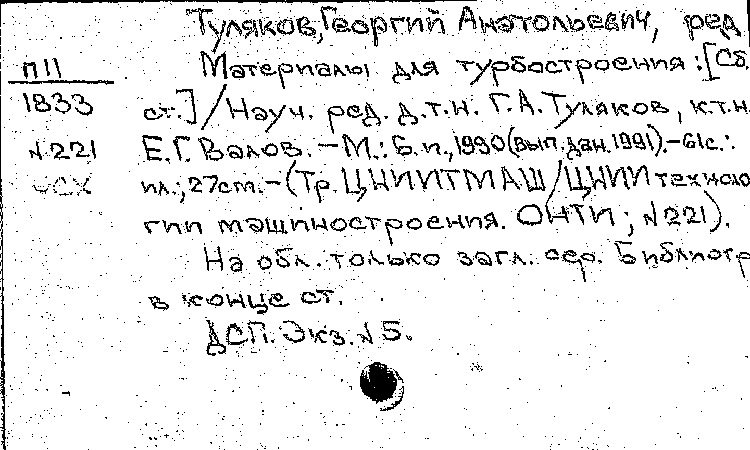 Туляков, Георгий Анатольевич, ред
П11
Материалы для турбостроения: [Сб.
1833
ст.] / Науч. ред. д.т.н. Г.А. Туляков, к.т.н
N221
Е.Г. Валов. — М.: Б.и., 1990 (вып. дан. 1991). — 61с.:
ил.; 27см. — (Тр. ЦНИИТМАШ / ЦНИИ техноло
гии машиностроения. ОНТИ; N221).
На обл. только загл. сер. Библиогр
в конце ст.
ДСП. Экз. N5.